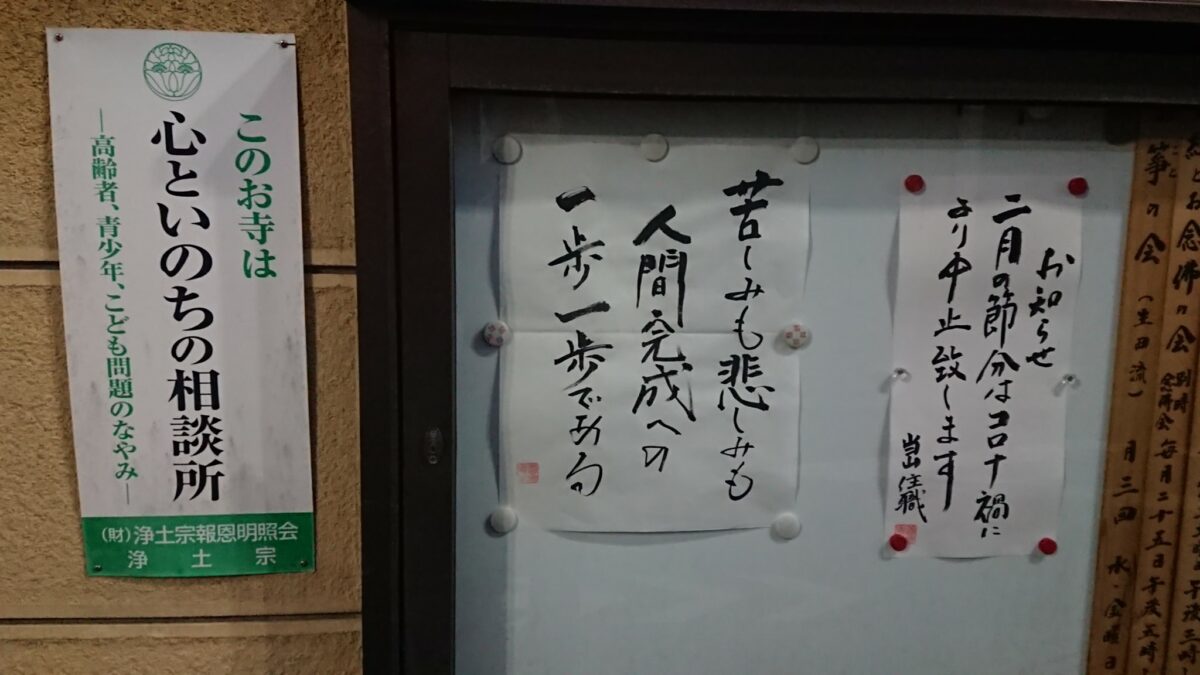 このお寺は
心といのちの相談所
―高齢者、青少年、こども問題のなやみ―
(財)浄土宗報恩明照会
浄土宗
苦しみも悲しみも
人間完成への
一歩一歩である
お知らせ
二月の節分はコロナ禍に
より中止致します
当山住職
お念佛の会 別時念佛会 毎月二十五日午後五時
箏の会(生田流) 月三回 水・金曜日